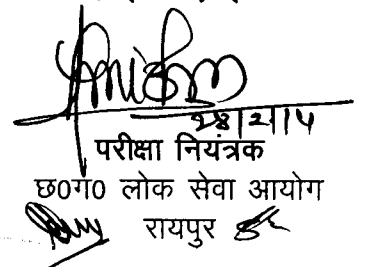 28/2/14
परीक्षा नियंत्रक
छ0ग0 लोक सेवा आयोग
रायपुर